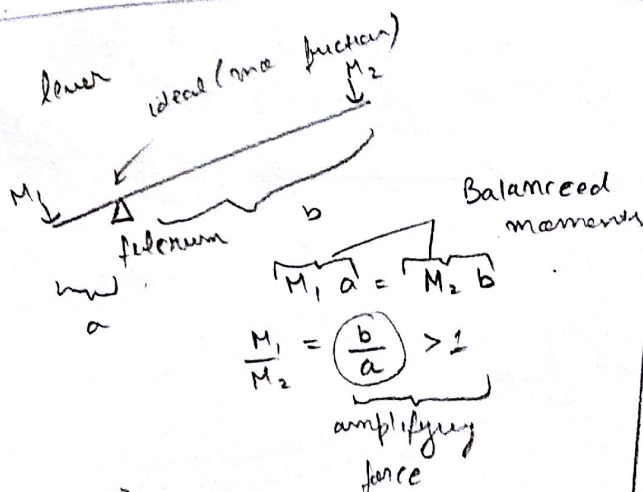 lever
ideal (no friction)
M₂
M₁
Δ
fulcrum
b
a
Balanceed
moments
M₁ a = M₂ b
M₁/M₂ = b/a > 1
amplifying
force